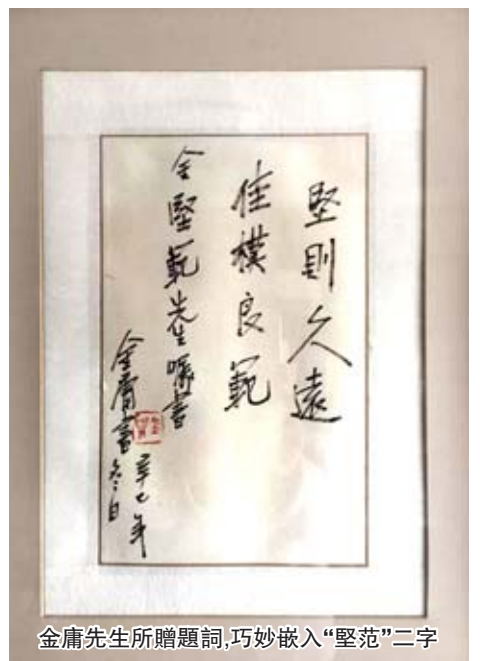 堅則久遠
佳模良範
金堅範先生囑書
金庸書
金庸先生所贈題詞,巧妙嵌入“堅范”二字